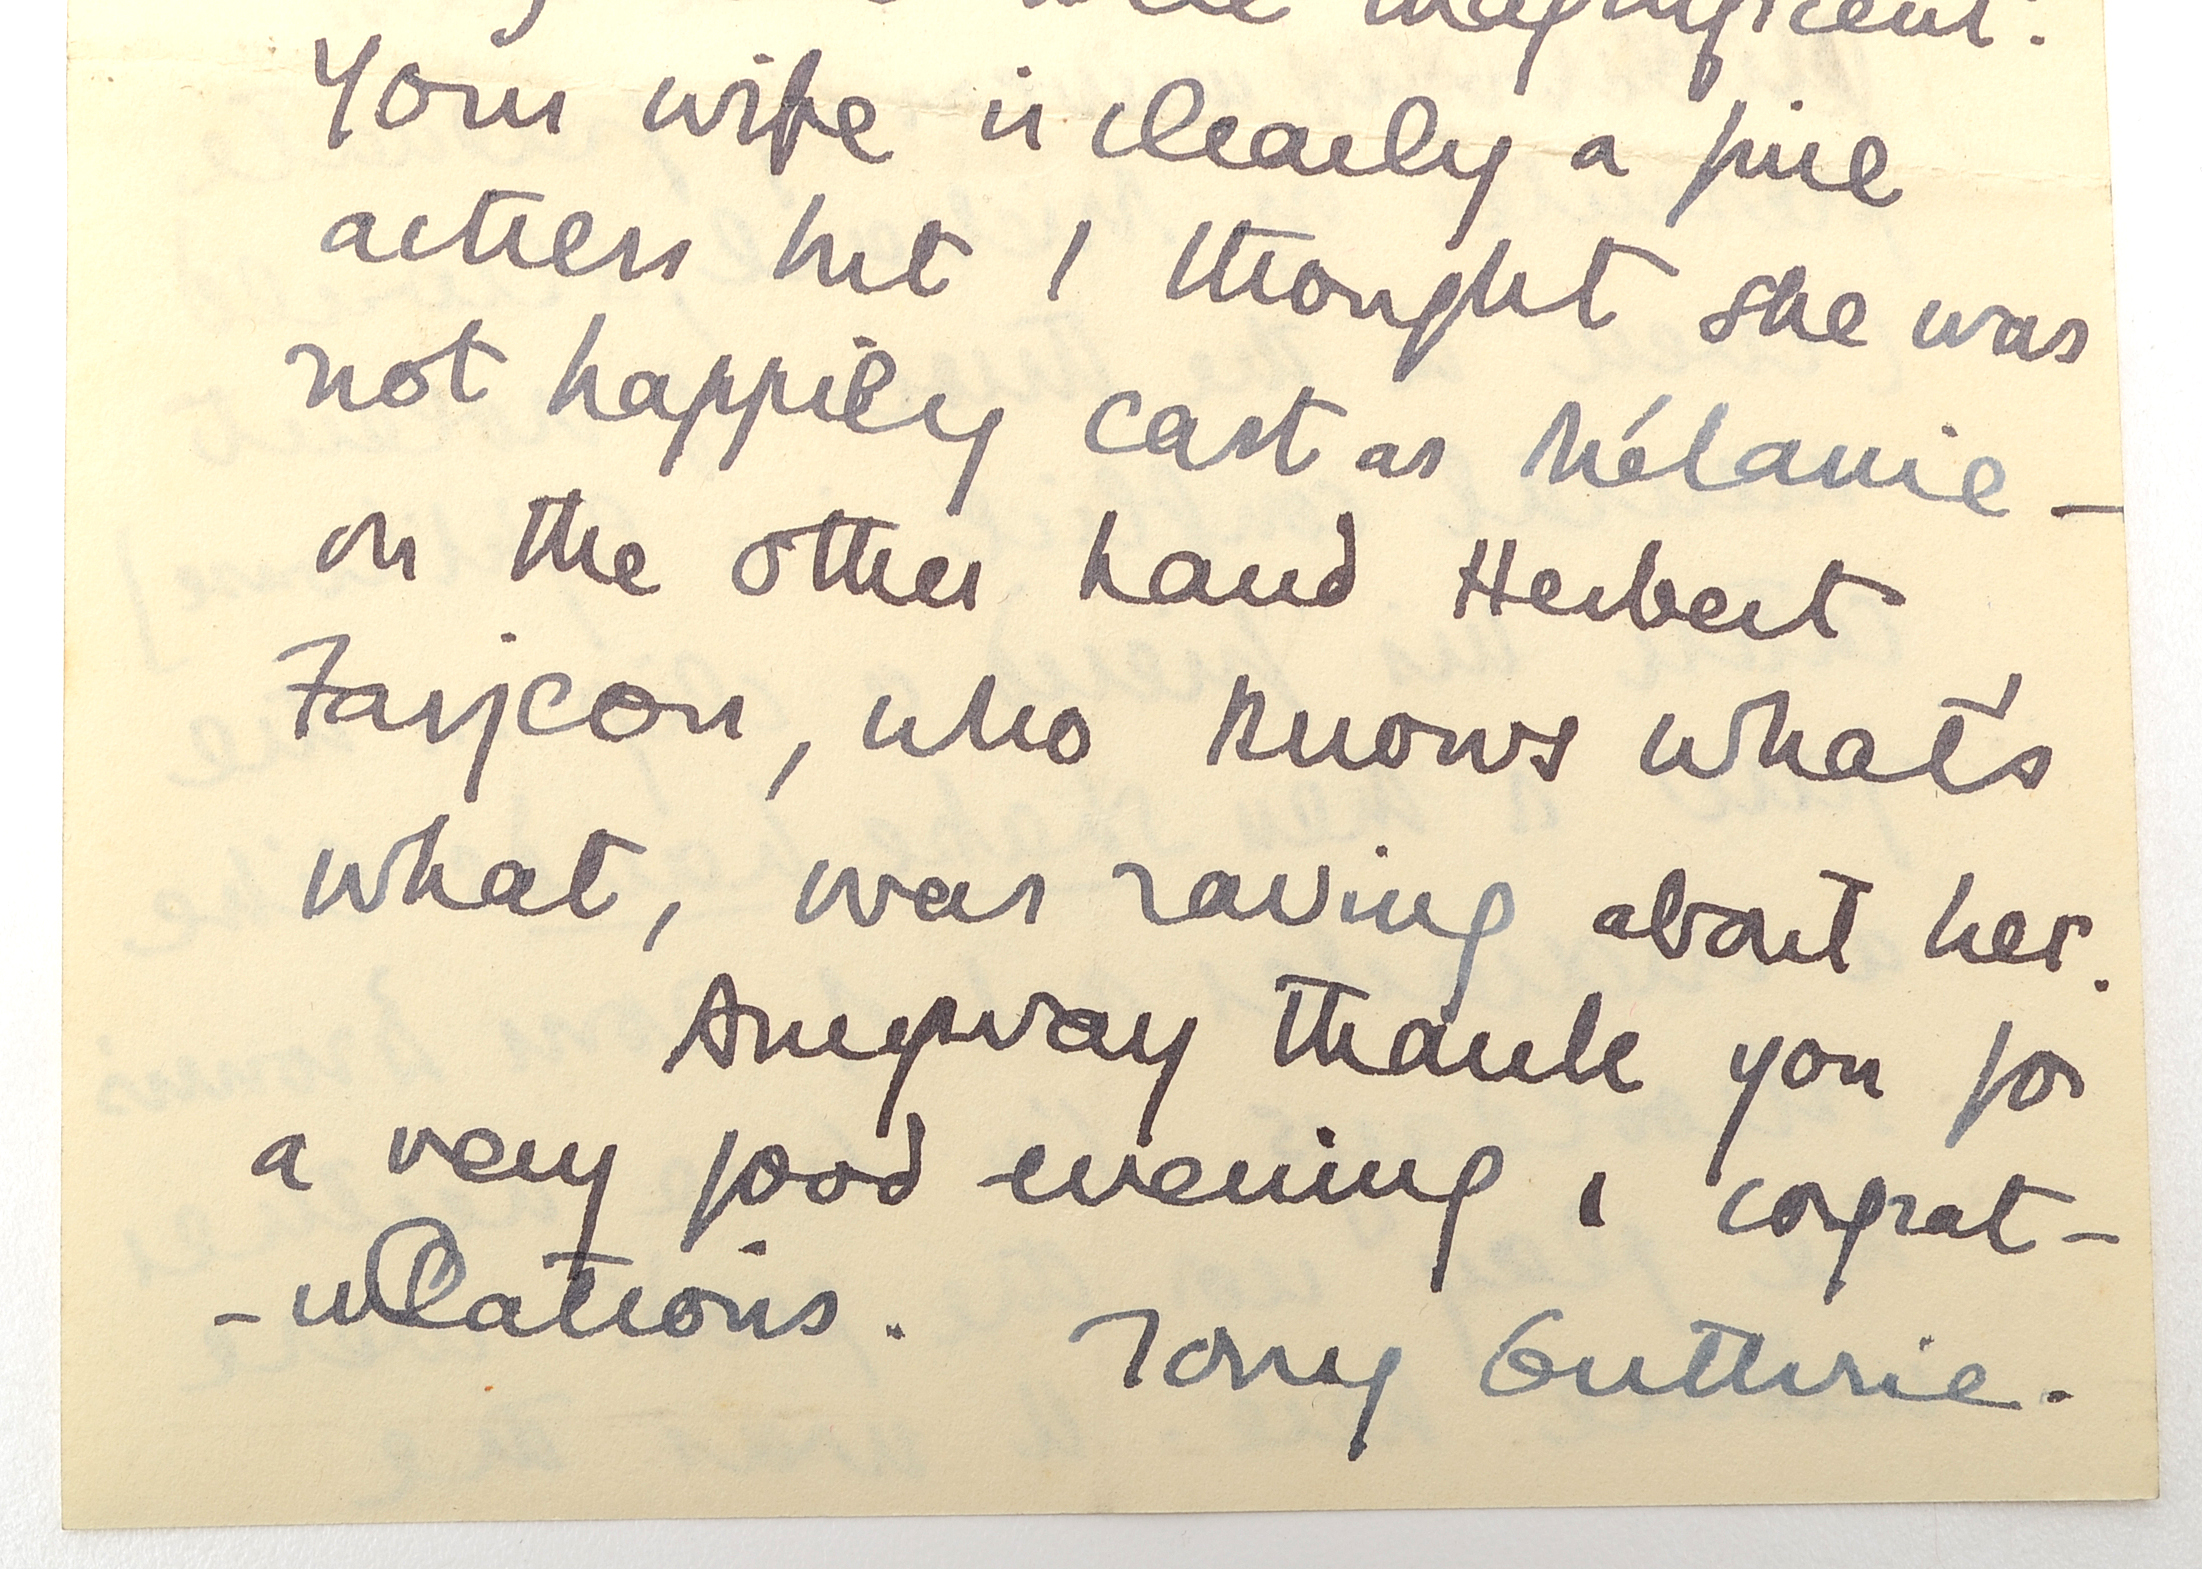 were magnificent.
Your wife is clearly a fine
actress but I thought she was
not happily cast as Mélanie —
on the other hand Herbert
Farjeon, who knows what's
what, was raving about her.
Anyway thank you for
a very good evening & congrat-
-ulations. Tony Guthrie.